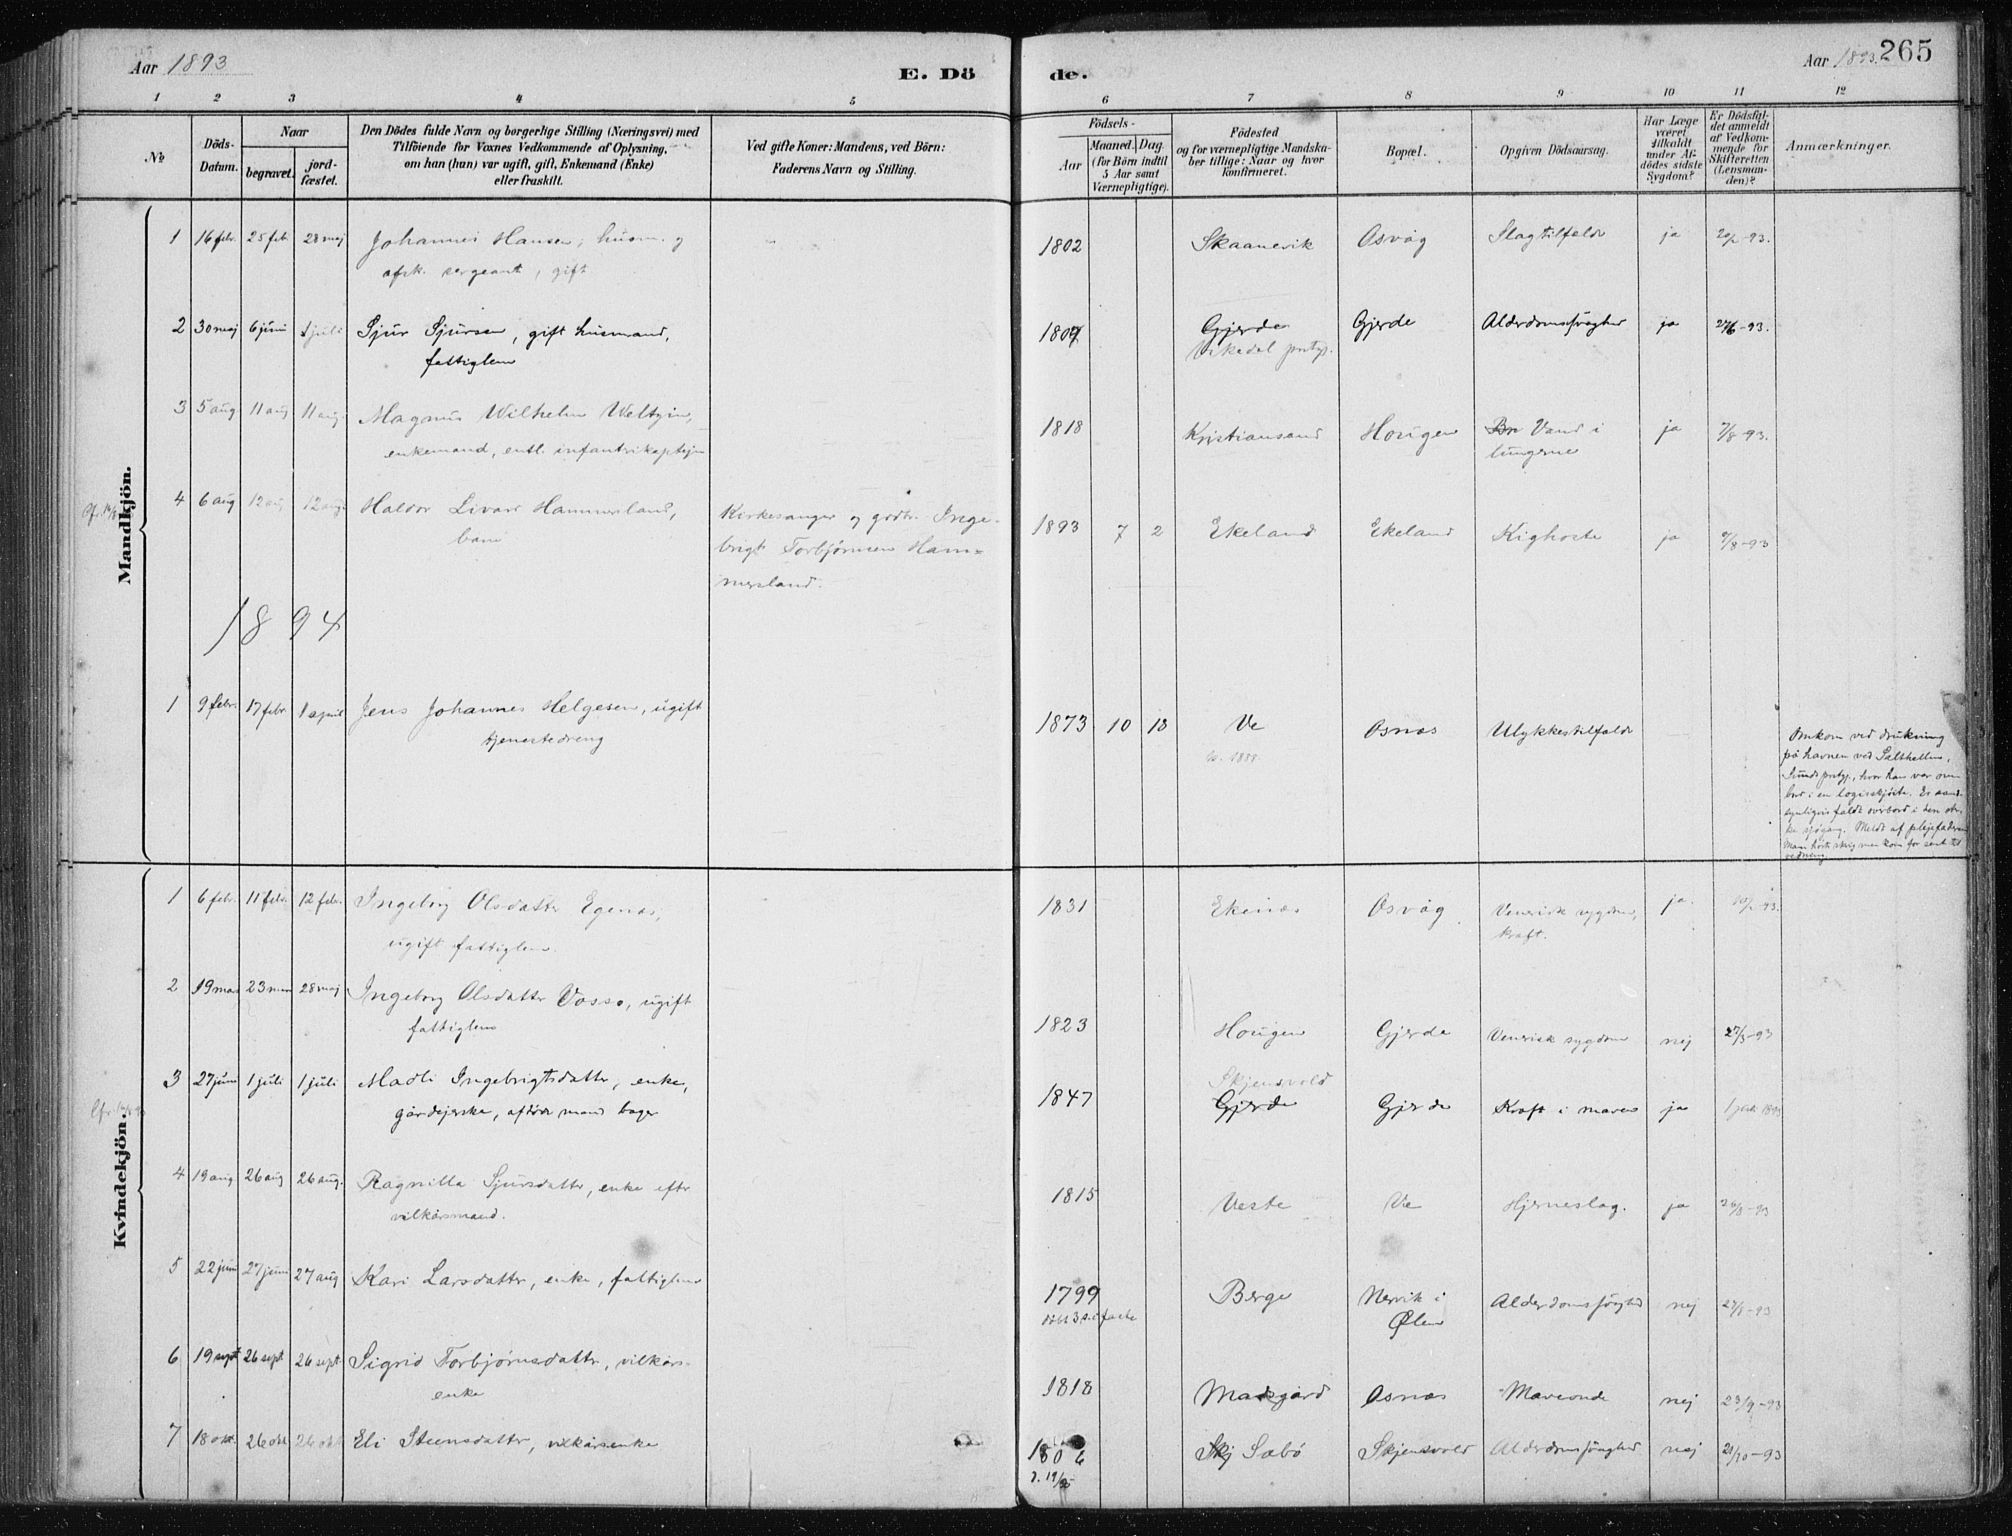 Aar 1893
E. Dö
de.
Aar 1893.
265
1 2 3 4 5 6 7 8 9 10 11 12
№
Döds-
Datum.
Naar
begravet.
jord-
fæstet.
Den Dödes fulde Navn og borgerlige Stilling (Næringsvei) med
Tilföiende for Voxnes Vedkommende af Oplysning,
om han (hun) var ugift, gift, Enkemand (Enke)
eller fraskilt.
Ved gifte Koner: Mandens, ved Börn:
Faderens Navn og Stilling.
Födsels-
Aar
Maaned. Dag.
(for Börn indtil
5 Aar samt
Værnepligtige).
Födested
og for værnepligtige Mandska-
ber tillige: Naar og hvor
konfirmeret.
Bopæl.
Opgiven Dödsaarsag.
Har Læge
været
tilkaldt
under Af-
dödes sidste
Sygdom?
Er Dödsfal-
det anmeldt
af Vedkom-
mende for
Skifteretten
(Lensman-
den)?
Anmærkninger.
Mandkjön.
1 16 febr. 25 feb. 28 maj Johannes Hansen, husm. og
afsk. sergeant, gift
1802 Skaanevik Osvåg Slagtilfælde ja 20/2-93.
2 30 maj 6 juni 1 juli Sjur Sjursen, gift husmand,
fattiglem
1807 Gjerde Gjerde Alderdomssvaghed ja 27/6-93.
Vikedal prstgj.
3 5 aug 11 aug 11 aug. Magnus Wilhelm Weltzin,
enkemand, entl. infantrikaptejn
1818 Kristiansand Hougen Vand i
lungerne ja 7/8-93.
4 6 aug 12 aug 12 aug. Haldor Livar Hammersland,
barn
Kirkesanger og grdbr. Inge-
brigt Torbjørnsen Ham-
mersland.
1893 7 2 Ekeland Ekeland Kighoste ja 9/8-93
1894
1 9 febr. 17 febr. 1 april Jens Johannes Helgesen, ugift
tjenestedreng
1873 10 18 Ve Osnas Ulykkestilfælde
k. 1888.
Omkom ved drukning
på havnen ved Salthellen,
Sunds prstgj., hvor han var om-
bord i en logisskjøite. Er sand-
synligvis faldt overbord i den ster-
ke sjøgang. Meldt af plejefaderen
Man hørte skrig men kom for sent til
redning.
Kvindekjön.
1 6 febr. 11 febr. 12 febr. Ingeborg Olsdatter Egenas,
ugift fattiglem.
1831 Ekenas Osvåg Venerisk sygdom,
kræft. ja. 10/2-93.
2 19 mars 23 mars 28 maj Ingeborg Olsdatter Vosso, ugift
fattiglem
1823 Hougen Gjerde Venerisk sygdom nej 27/3-93
3 27 juni 1 juli 1 juli Madli Ingebrigtsdatter, enke,
gårdejerske, afdøde mand bager
Skjensvold
1847 Gjerde Gjerde Kræft i maven ja 1 juli 1893
4 19 aug 26 aug 26 aug. Ragnilla Sjursdatter, enke efter
vilkårsmand.
1815 Veste Ve Hjerneslag. ja 26/8-93
5 22 juni 27 juni 27 aug Kari Larsdatter, enke, fattiglem
1799 Berge Nervik i
Ølen Alderdomssvaghed nej 27/8-93
døbt 3 s. i faste
6 19 sept 26 sept 26 sept Sigrid Torbjørnsdatter, vilkårs-
enke
1818 Madsgård Osnas Maveonde nej 23/9-93
7 18 okt. 26 okt 26 okt Eli Steensdatter, vilkårsenke
1806 Sæbö Skjensvold Alderdomssvaghed nej 21/10-93